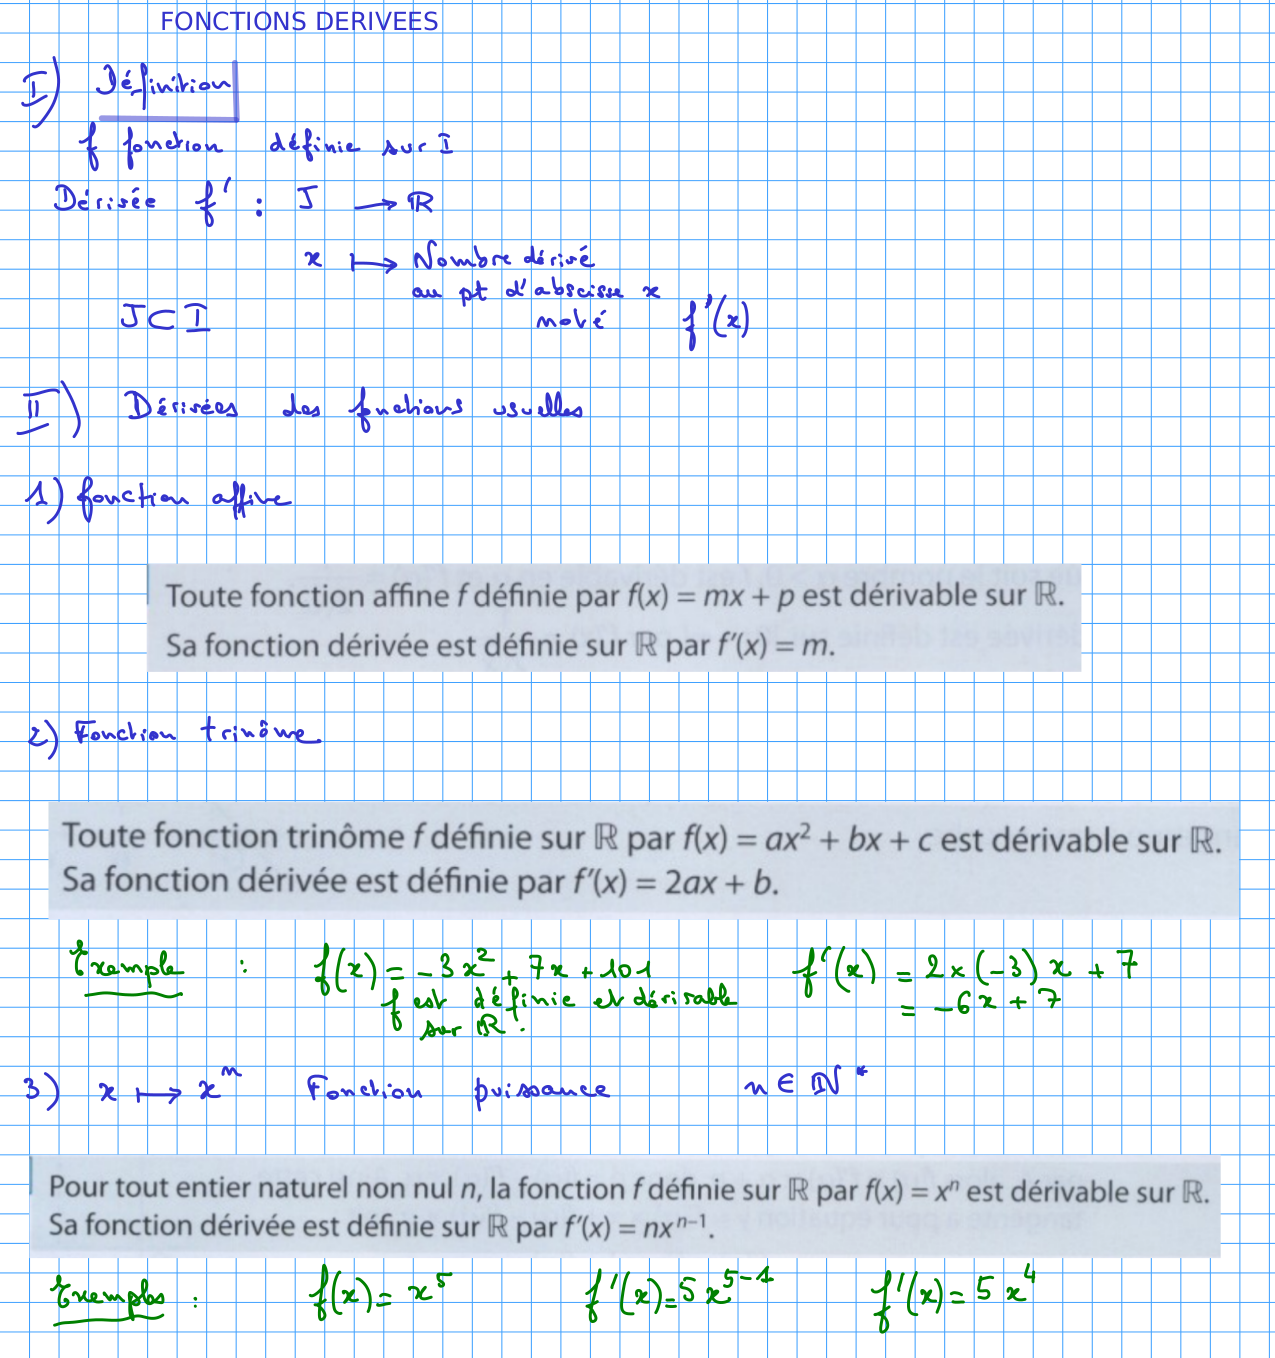 FONCTIONS DERIVEES
I) Définition
f fonction définie sur I
Dérivée f' : J ⟶ ℝ
x ⟼ Nombre dérivé
au pt d'abscisse x
J⊂I noté f'(x)
II) Dérivées des fonctions usuelles
1) fonction affine
Toute fonction affine f définie par f(x) = mx + p est dérivable sur ℝ.
Sa fonction dérivée est définie sur ℝ par f'(x) = m.
2) Fonction trinôme
Toute fonction trinôme f définie sur ℝ par f(x) = ax² + bx + c est dérivable sur ℝ.
Sa fonction dérivée est définie par f'(x) = 2ax + b.
Exemple : f(x) = -3x² + 7x + 101 f'(x) = 2×(-3)x + 7
f est définie et dérivable = -6x + 7
sur ℝ.
3) x ⟼ xⁿ Fonction puissance n ∈ ℕ*
Pour tout entier naturel non nul n, la fonction f définie sur ℝ par f(x) = xⁿ est dérivable sur ℝ.
Sa fonction dérivée est définie sur ℝ par f'(x) = nxⁿ⁻¹.
Exemples : f(x) = x⁵ f'(x) = 5x⁵⁻¹ f'(x) = 5x⁴